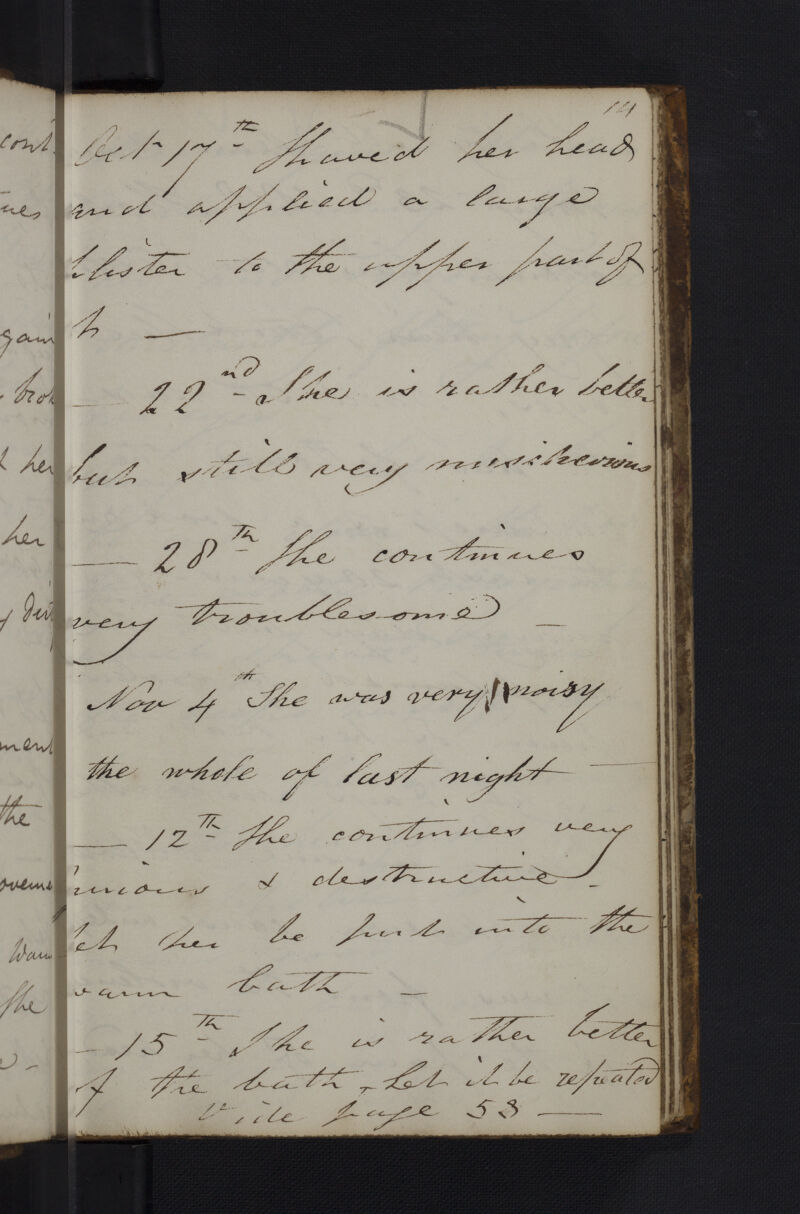 Oct 17th Shaved her head
and applied a large
blister to the upper part of
it —
— 22nd She is rather better
but still very mischevious
— 28th She continues
very troublesome —
Nov 4th She was very noisy
the whole of last night —
— 12th She continues very
furious & destructive -
let her be put into the
warm bath —
— 15th She is rather better
of the bath, let it be repeated
Vide page 53 —
cont
ues
gain
her
her
ment
the
She